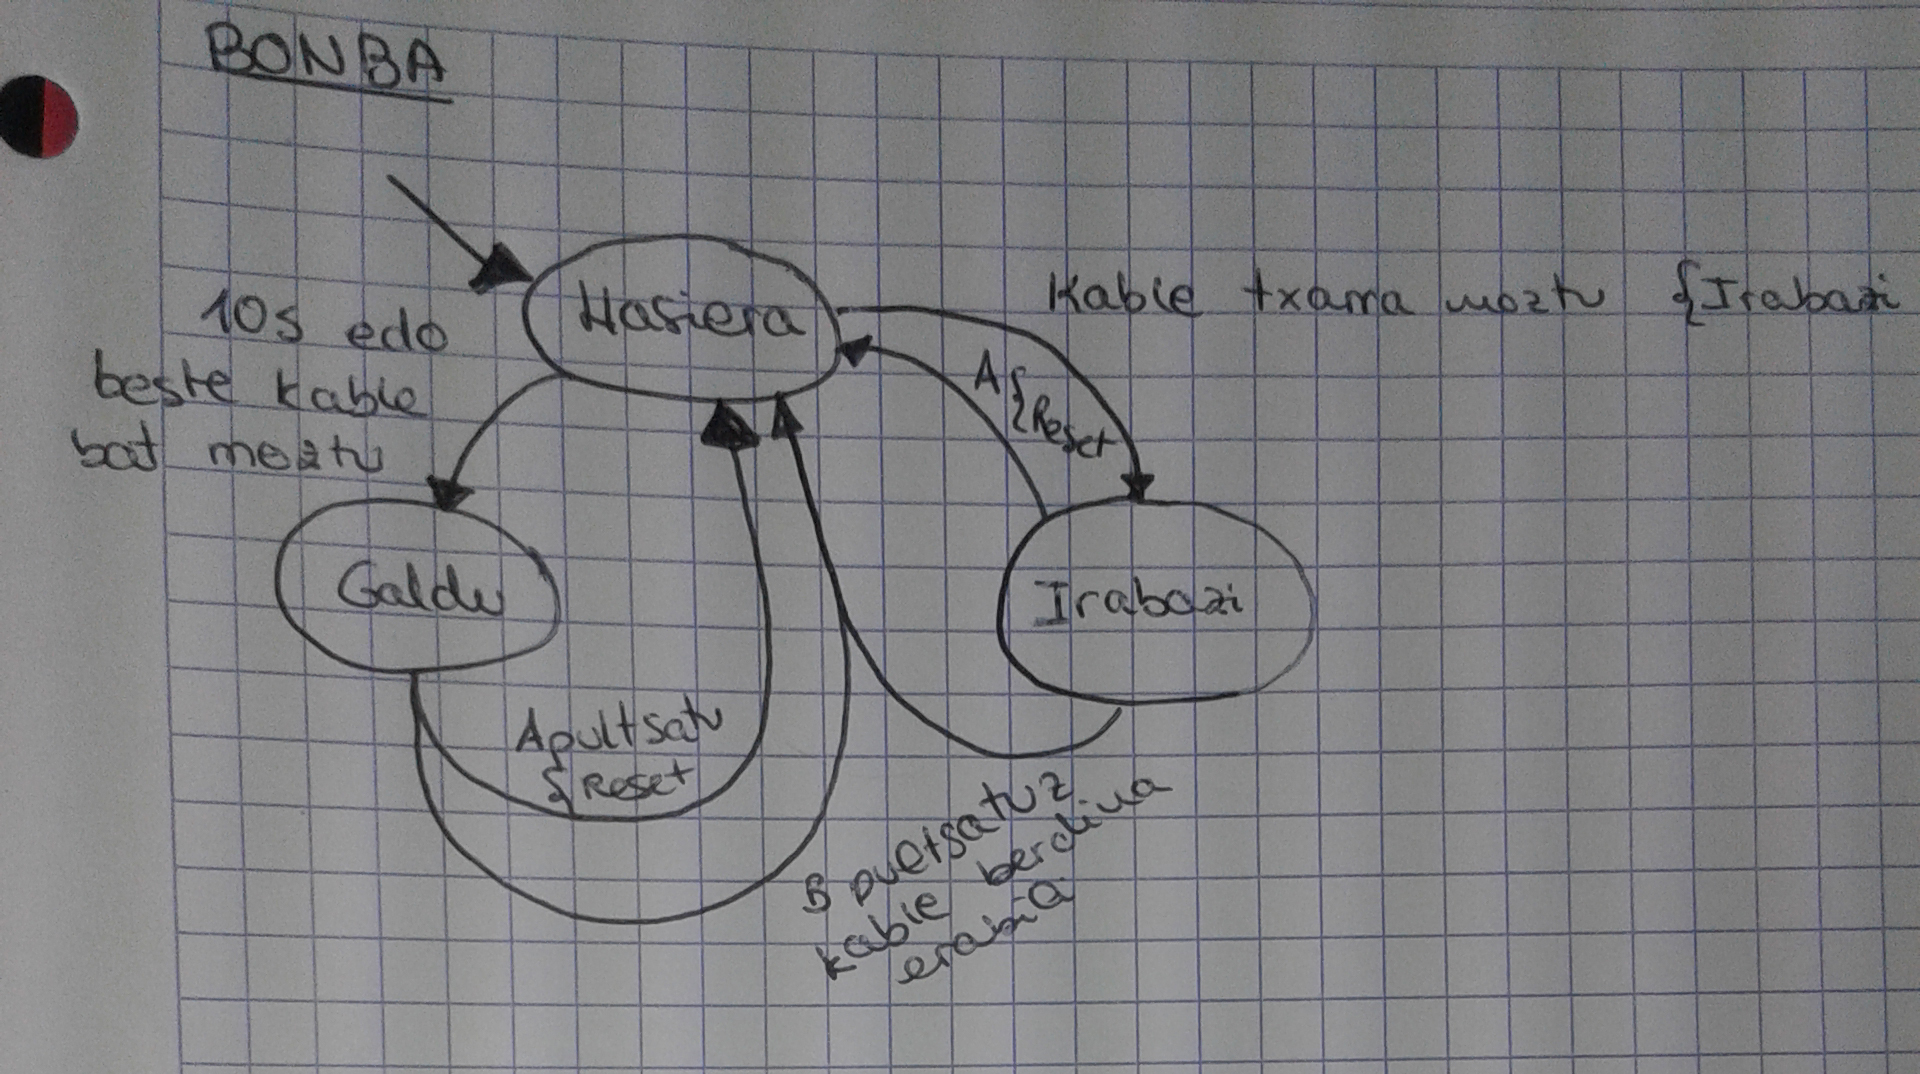 BONBA
Hasiera
Kable txarra moztu {Irabazi
10s edo
beste kable
bat moztu
A
{Reset
Galdu
Irabazi
A pultsatu
{Reset
B pultsatuz
kable berdina
erabili